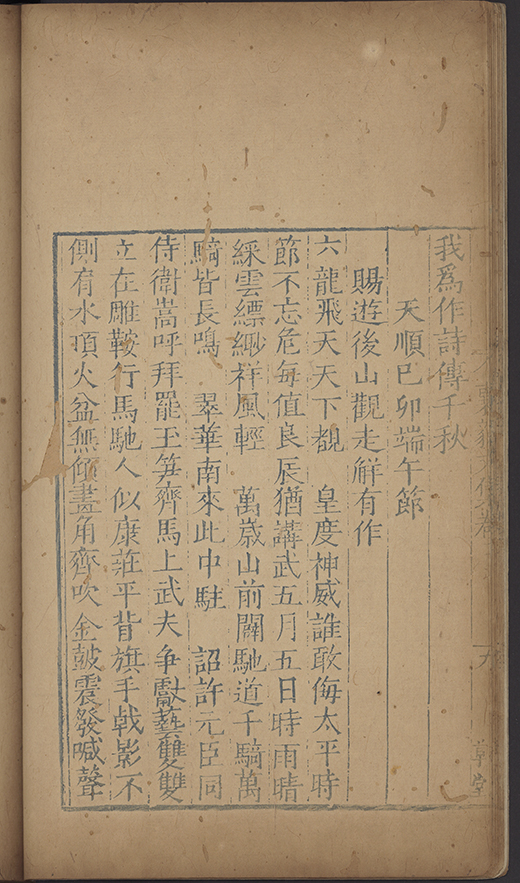 我爲作詩傳千秋
天順己卯端午節
賜遊後山觀走觧有作
六龍飛天天下覩　皇度神威誰敢侮太平時
節不忘危每值良辰猶講武五月五日時雨晴
綵雲縹緲祥風輕　萬歲山前闢馳道千騎萬
騎皆長鳴　翠華南來此中駐　詔許元臣同
侍衛嵩呼拜罷玉笋齊馬上武夫爭獻藝雙雙
立在雕鞍行馬馳人似康莊平背旗手戟影不
側有水頂火盆無傾晝角齊吹金鼓震發喊聲
草堂